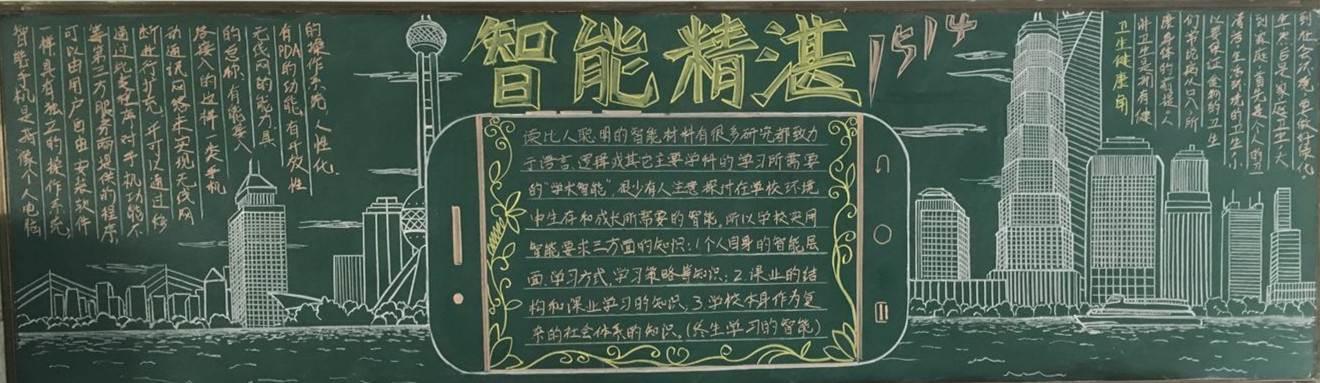 智能精湛
1514
智慧手机是指像个人电脑
一样具有独立的操作系统
可以由用户自由安装软件
等第三方服务商提供的程序
通过此类程序对手机功能不
断进行扩充，并可以通过移
动通讯网络来实现无线网
络接入的这样一类手机
的总称，有能接入
无线网的能力具
有PDA的功能，有开放性
的操作系统，人性化.
读比人聪明的智能材料有很多研究都致力
于语言、逻辑或其它主要学科的学习所需要
的"学术智能"很少有人注意探讨在学校环境
中生存和成长所需要的智能。所以学校实用
智能要求三方面的知识:1个人自身的智能层
面、学习方式、学习策略等知识、2.课业的结
构和课业学习的知识、3.学校本身作为复
杂的社会体系的知识。(终生学习的智能)
卫生健康角
讲卫生是拥有健
康身体的前提，人
们常说病从口入所
以要保证食物的卫生
清洁，生活环境的卫生，
到家庭，首先是个人的